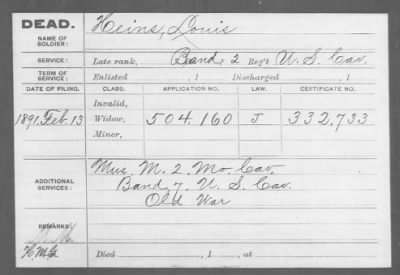 DEAD.
NAME OF SOLDIER:
Heins, Louis
SERVICE:
Late rank, Band, 2 Reg't U. S. Cav.
TERM OF SERVICE:
Enlisted , 1 Discharged , 1
DATE OF FILING. CLASS. APPLICATION NO. LAW. CERTIFICATE NO.
Invalid,
1891. Feb. 13 Widow, 504.160 J 332.733
Minor,
ADDITIONAL SERVICES:
Mus. M. 2. Mo. Cav.
Band, 7. U. S. Cav.
Old War
REMARKS:
Died , 1 , at